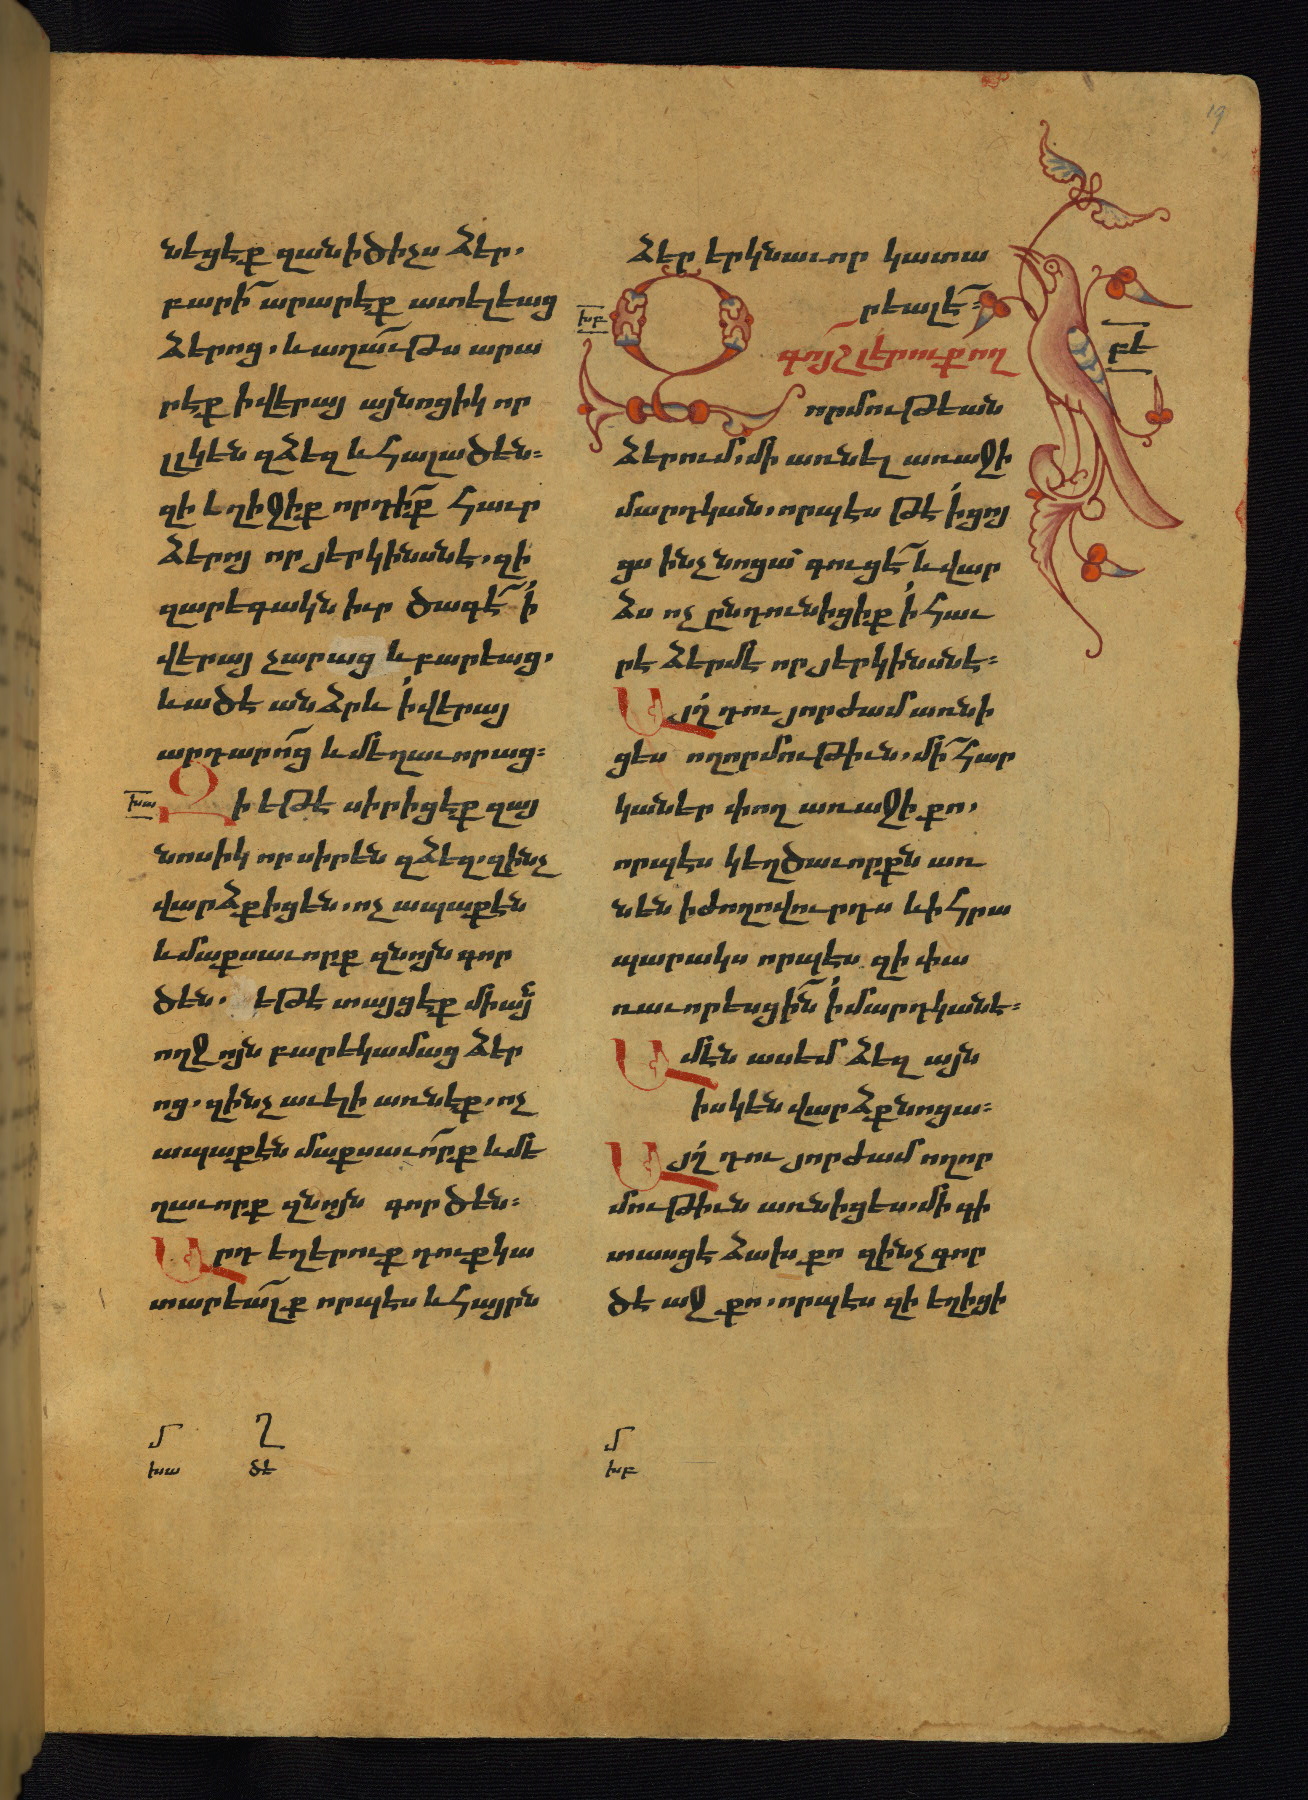 նէցէք զանիծիչս ձեր.
բարի՜ արարէք ատելեաց
ձերոց. և աղա՜ւթս արա
րէք ի վերայ այնոցիկ որ
լլկեն զձեզ և հալածեն։
զի եղիջիք որդիք հաւր
ձերոյ որ յերկինսնէ. զի
զարեգակն իւր ծագէ՜ ի
վերայ չարաց և բարեաց.
և ածէ անձրև ի վերայ
արդարոց և մեղաւորաց։
խա
Զի եթէ սիրիցէք զայ
նոսիկ որ սիրեն զձեզ. զինչ
վարձք իցեն. ոչ ապաքէն
և մաքսաւորք զնոյն գոր
ծեն. եթէ տայցէք միայն
ողջոյն բարեկամաց ձեր
ոց. զինչ աւելի առնէք. ոչ
ապաքէն մաքսաւորք և մե
ղաւորք զնոյն գործեն։
Արդ եղերուք դուք կա
տարեա՜լք որպէս և հայրն
մ ղ
խա ծե
ձեր երկնաւոր կատա
րեալ է՜։
խբ
գոյշ լերուք ող
բե
որմութեան
ձերում. մի առնել առաջի
մարդկան. որպէս թէ ի ցոյ
ցս ինչ նոցա՝ գուցէ՜ և վար
ձս ոչ ընդունիցիք ի հաւ
րէ ձերմէ որ յերկինսնէ։
Այլ դու յորժամ առնի
ցես ողորմութիւն. մի՜ հար
կաներ փող առաջի քո.
որպէս կեղծաւորքն առ
նեն ի ժողովուրդս և ի հրա
պարակս որպէս զի փա
ռաւորեսցին ի մարդկանէ։
Ամէն ասեմ ձեզ այն
իսկ են վարձք նոցա։
Այլ դու յորժամ ողոր
մութիւն առնիցես. մի գի
տասցէ ձախ քո զինչ գոր
ծէ աջ քո. որպէս զի եղիցի
մ
խբ
19